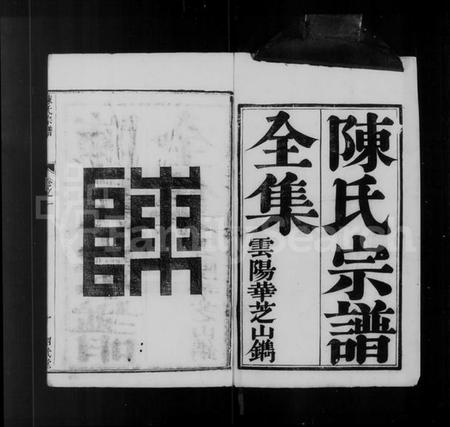 陳氏宗譜
全集
雲陽華芝山鐫
陳